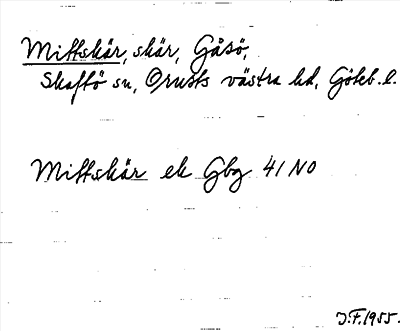 Mittskär, skär, Gåsö,
Skaftö sn, Orusts västra hd, Göteb. l.
Mittskär ek Gbg 41 NO
J.F. 1955.